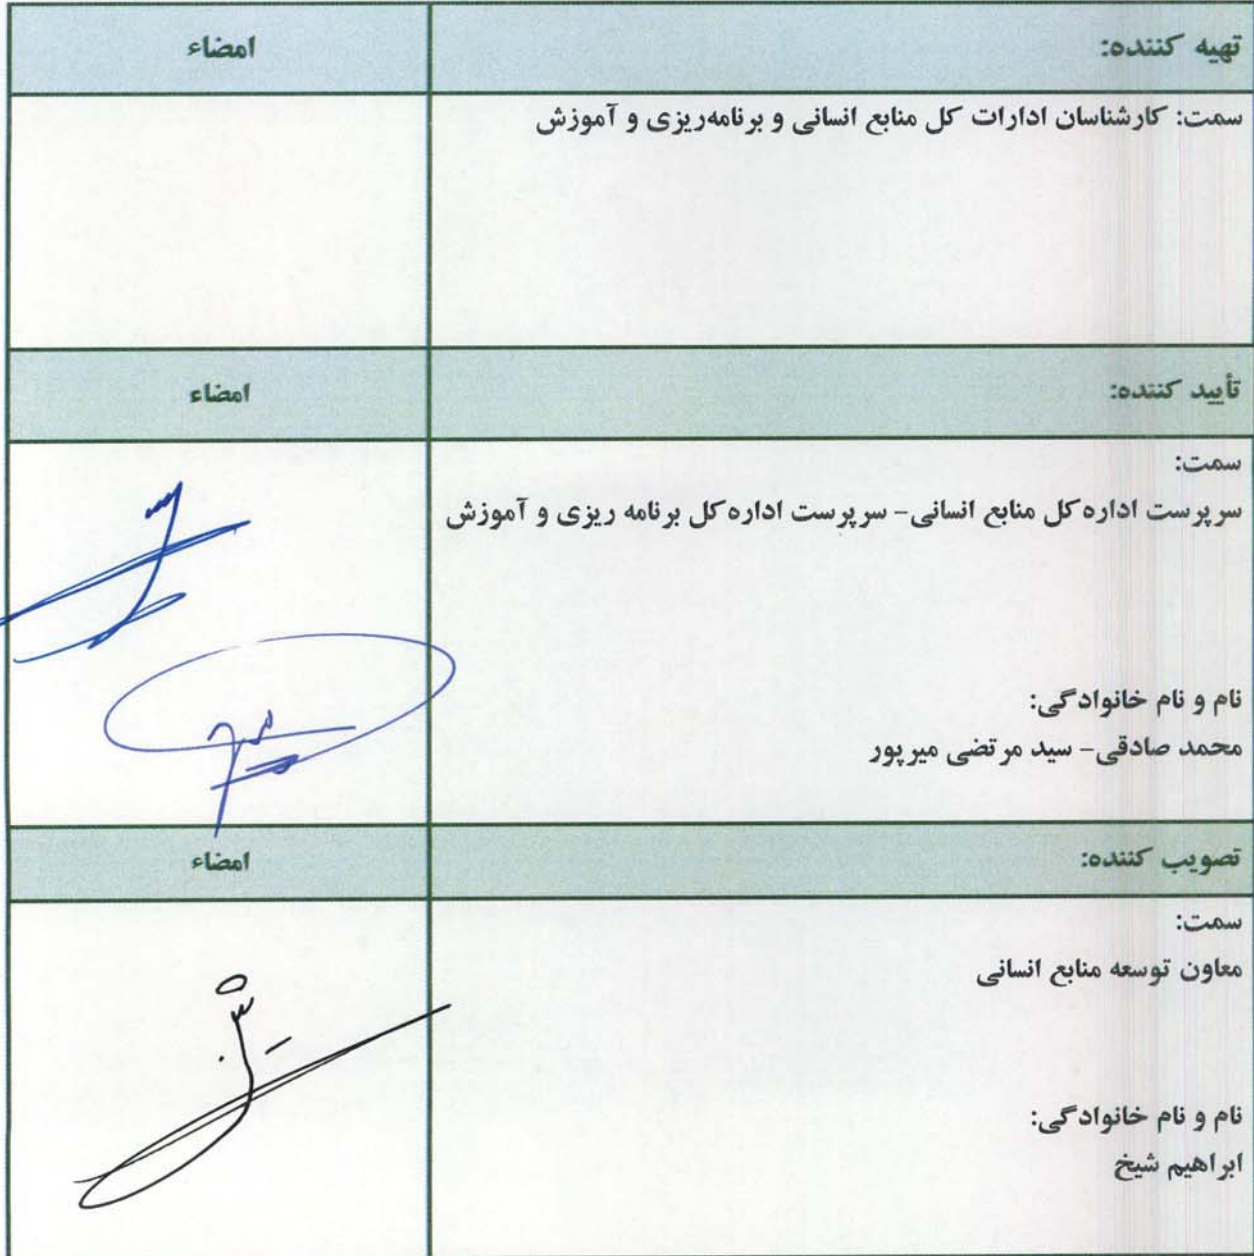 تهیه کننده:
امضاء
سمت: کارشناسان ادارات کل منابع انسانی و برنامه‌ریزی و آموزش
تأیید کننده:
امضاء
سمت:
سرپرست اداره کل منابع انسانی- سرپرست اداره کل برنامه ریزی و آموزش
نام و نام خانوادگی:
محمد صادقی- سید مرتضی میرپور
تصویب کننده:
امضاء
سمت:
معاون توسعه منابع انسانی
نام و نام خانوادگی:
ابراهیم شیخ